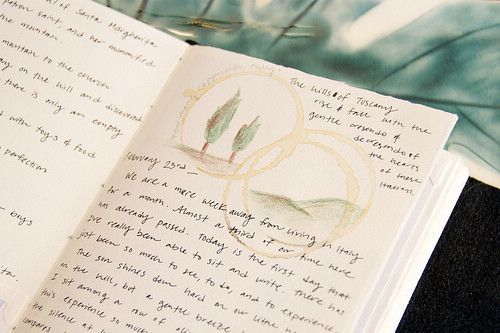 of Santa Margherita
patron saint and her mummified
the mountain.
mountain to the church
on the hill and discovered
there is only an empty
with toys & food
perfection
- boys
The hills of Tuscany
rise & fall with the
gentle cresendo &
decresendo of
the hearts
of these
Italians.
February 23rd —
We are a mere week away from living in Italy
for a month. Almost a third of our time here
has already passed. Today is the first day that
I've really been able to sit and write. There has
just been so much to see, to do, and to experience.
The sun shines down hard on our little
in the hill, but a gentle breeze
I sit among a row of
this experience so much
the silence at
compares